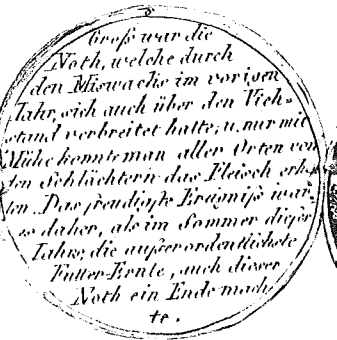 Groß war die
Noth, welche durch
den Miswachs im vorigen
Jahr, sich auch über den Vieh-
stand verbreitet hatte, u. nur mit
Mühe konnte man aller Orten von
den Schlächtern das Fleisch erhal-
ten. Das freudigste Ereigniß war
es daher, als im Sommer dieses
Jahrs, die außerordentlichste
Futter-Ernte, auch dieser
Noth ein Ende mach-
te.